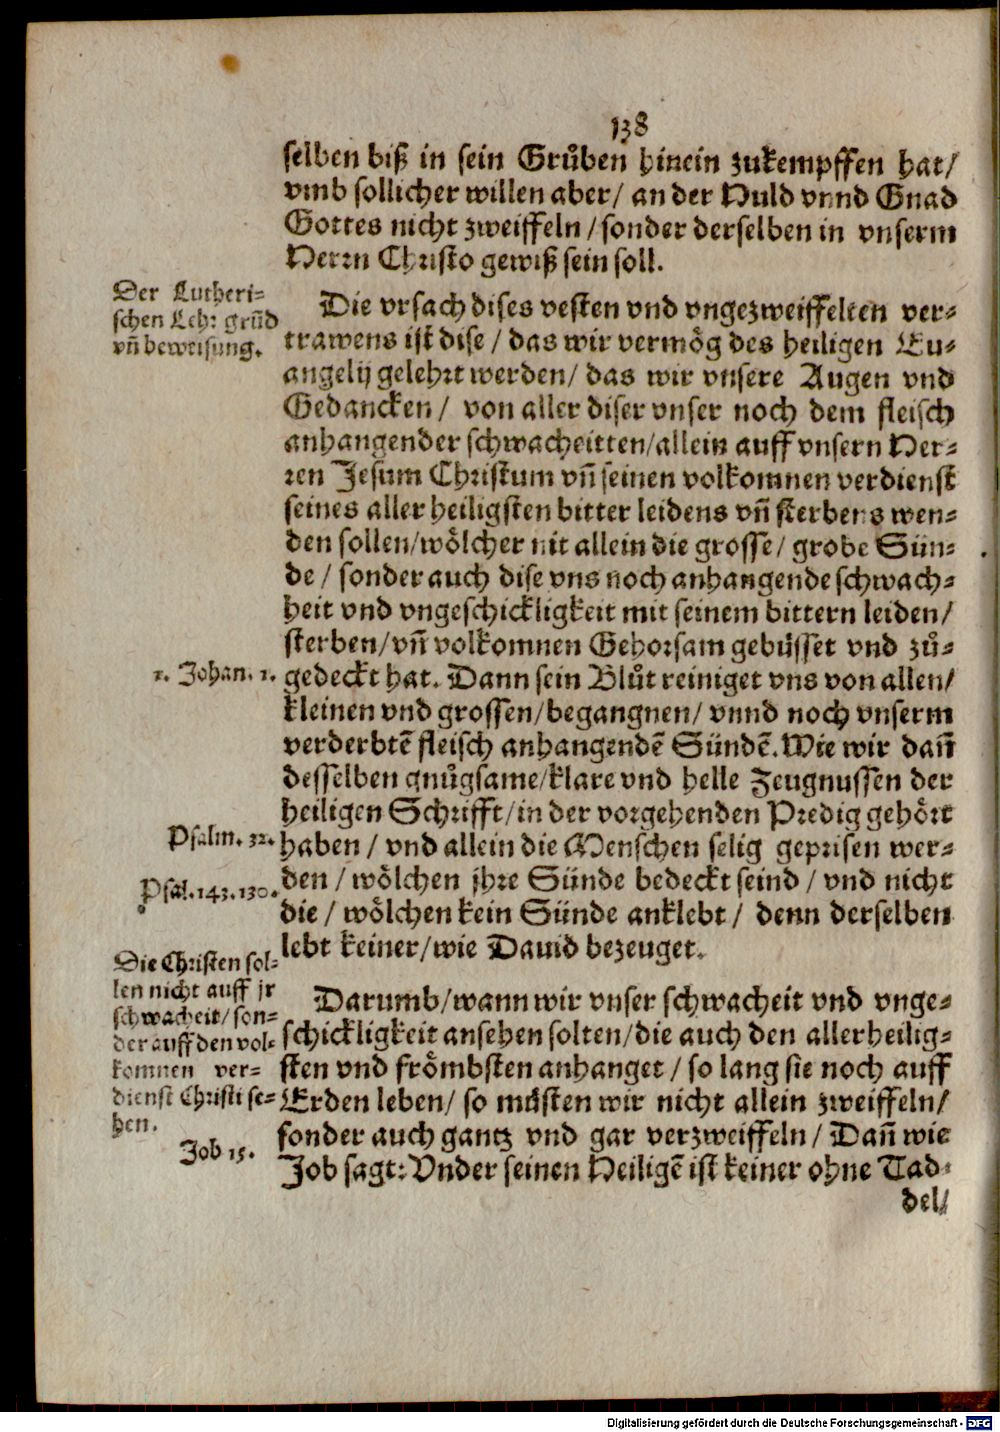 138
selben biß in sein Grůben hinein zukempffen hat/
vmb sollicher willen aber/ an der Huld vnnd Gnad
Gottes nicht zweiffeln/ sonder derselben in vnserm
Herrn Christo gewiß sein soll.
Der Lutheri-
schen Lehr grũd
vñ beweisung.
Die vrsach dises vesten vnd vngezweiffelten ver-
trawens ist dise/ das wir vermög des heiligen Eu-
angelij gelehrt werden/ das wir vnsere Augen vnd
Gedancken/ von aller diser vnser noch dem fleisch
anhangender schwacheitten/ allein auff vnsern Her-
ren Jesum Christum vñ seinen volkomnen verdienst
seines aller heiligsten bitter leidens vñ sterbens wen-
den sollen/ wölcher nit allein die grosse/ grobe Sün-
de/ sonder auch dise vns noch anhangende schwach-
heit vnd vngeschickligkeit mit seinem bittern leiden/
sterben/ vñ volkomnen Gehorsam gebüsset vnd zů-
1. Johan. 1.
gedeckt hat. Dann sein Blůt reiniget vns von allen/
kleinen vnd grossen/ begangnen/ vnnd noch vnserm
verderbtẽ fleisch anhangendẽ Sündẽ. Wie wir dañ
desselben gnůgsame/ klare vnd helle Zeugnussen der
heiligen Schrifft/ in der vorgehenden Predig gehört
Psalm. 32.
haben/ vnd allein die Menschen selig geprisen wer-
Psal. 143. 130.
den/ wölchen jhre Sünde bedeckt seind/ vnd nicht
die/ wölchen kein Sünde anklebt/ denn derselben
lebt keiner/ wie Dauid bezeuget.
Die Christen sol-
len nicht auff jr
schwacheit/ son-
der auff den vol-
komnen ver-
dienst Christi se-
hen.
Darumb/ wann wir vnser schwacheit vnd vnge-
schickligkeit ansehen solten/ die auch den allerheilig-
sten vnd frömbsten anhanget/ so lang sie noch auff
Erden leben/ so müsten wir nicht allein zweiffeln/
sonder auch gantz vnd gar verzweiffeln/ Dañ wie
Job 15.
Job sagt: Vnder seinen Heiligẽ ist keiner ohne Tad-
del/
Digitalisierung gefördert durch die Deutsche Forschungsgemeinschaft - DFG